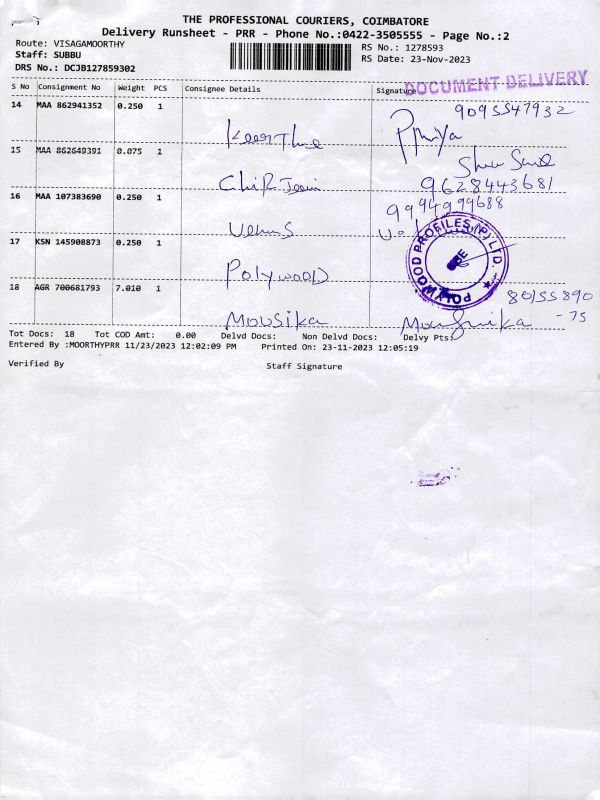 THE PROFESSIONAL COURIERS, COIMBATORE
Delivery Runsheet - PRR - Phone No.:0422-3505555 - Page No.:2
Route: VISAGAMOORTHY
Staff: SUBBU
DRS No.: DCJB127859302
RS No.: 1278593
RS Date: 23-Nov-2023
DOCUMENT DELIVERY
S No Consignment No Weight PCS Consignee Details Signature
14 MAA 862941352 0.250 1 9095547932
Keerthe Priya
15 MAA 862649391 0.075 1
9628443681
16 MAA 107383690 0.250 1 9994999688
Venus
17 KSN 145908873 0.250 1
Polywood
POLYWOOD PROFILES (P) LTD.
18 AGR 700681793 7.010 1 80155890
Mousika -75
Tot Docs: 18 Tot COD Amt: 0.00 Delvd Docs: Non Delvd Docs: Delvy Pts:
Entered By :MOORTHYPRR 11/23/2023 12:02:09 PM Printed On: 23-11-2023 12:05:19
Verified By Staff Signature